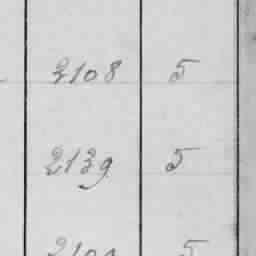 2108 5
2139 5
5